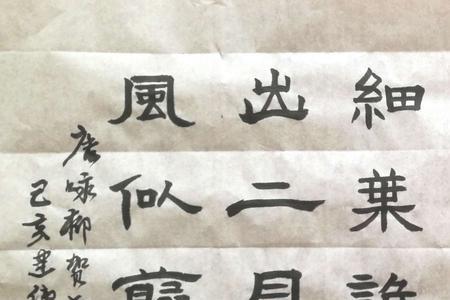 細葉誰
出二月
風似剪
唐咏柳賀
己亥建